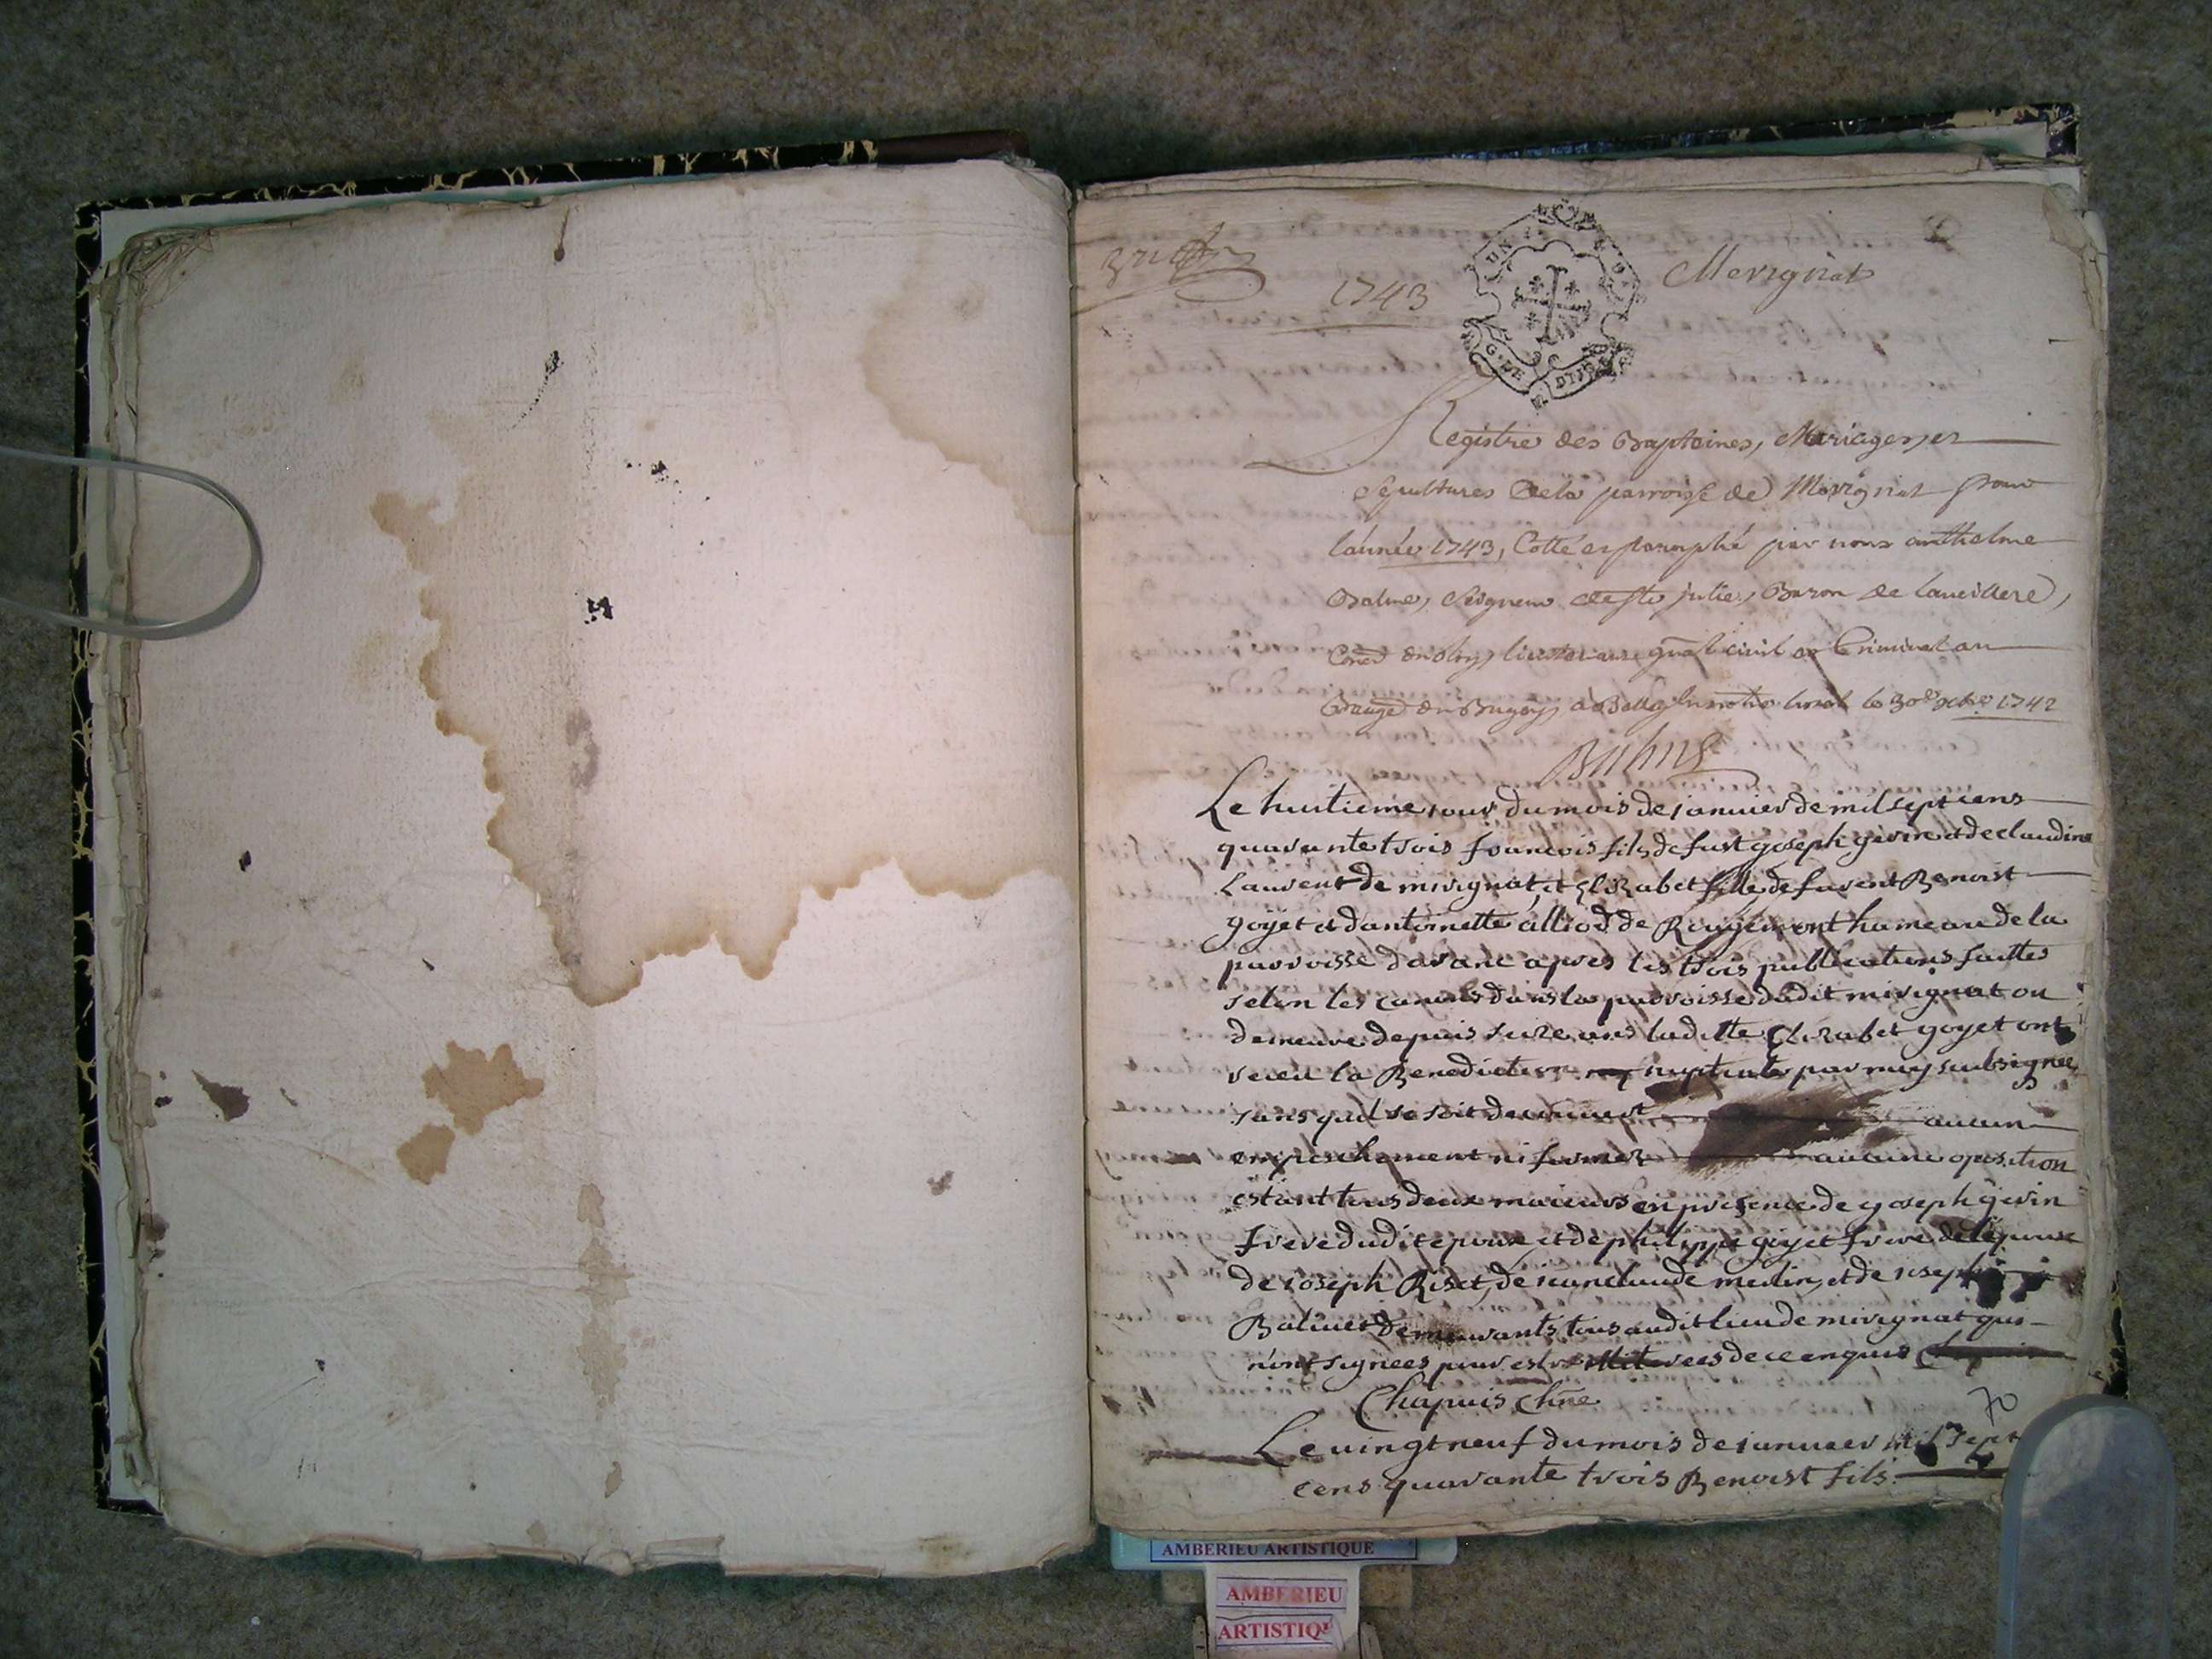 1743
Merignat
G. DE DIJON
Registre des Baptemes, Mariages, et
sepultures de la parroisse de Merignat pour
l'année 1743, Cotté et paraphé par nous anthelme
Balme, Seigneur de Ste julie, Baron de
lieutenant gñal civil et Criminel au
Bugey, a Belley le 30e 1742
Balme
Le huitieme iour du mois de ianuier de mil sept cens
quarante trois francois fils de fust joseph gevin et de claudine
Laurent de mirignat, et Elizabet fille de Benoist
goÿet et dantoinette alliod de Rougemont hameau de la
parroisse daranc apres les trois publications faittes
selon les canons dans la parroisse dudit mirignat ou
demeure depuis seize ans laditte Elizabet goyet ont
receu la Benediction nuptiale par moy subsigné
sans quil se soit decouvert aucun
empeschement ni former aucune oposition
estant tous deux maieurs en presence de joseph gevin
frere dudit epoux et de philippe goyet frere de lepouse
de ioseph Riset, de ieanclaude merlin, et de ioseph
Balivet demeurants tous audit lieu de mirignat qui
n'ont signees pour estre illiterees de ce enquis
Chapuis Chñe
70
Le uingt neuf du mois de ianuier mil sept
cens quarante trois Benoist fils
AMBERIEU ARTISTIQUE
AMBERIEU
ARTISTIQ